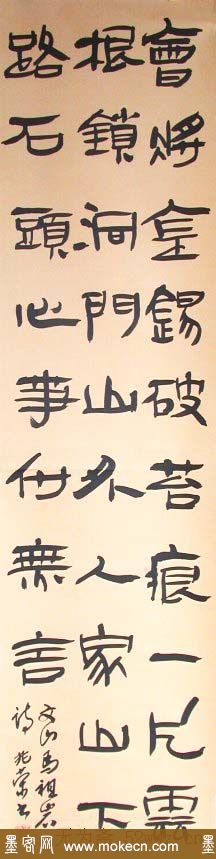 會將錫破苔痕一片雲
根鎖洞門山外人家山下
路石頭心事付無言
文山馬祖岩
詩
墨客网
www.mokecn.com